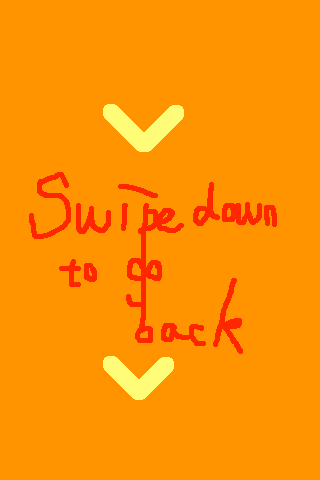 Swipe down
to go
back